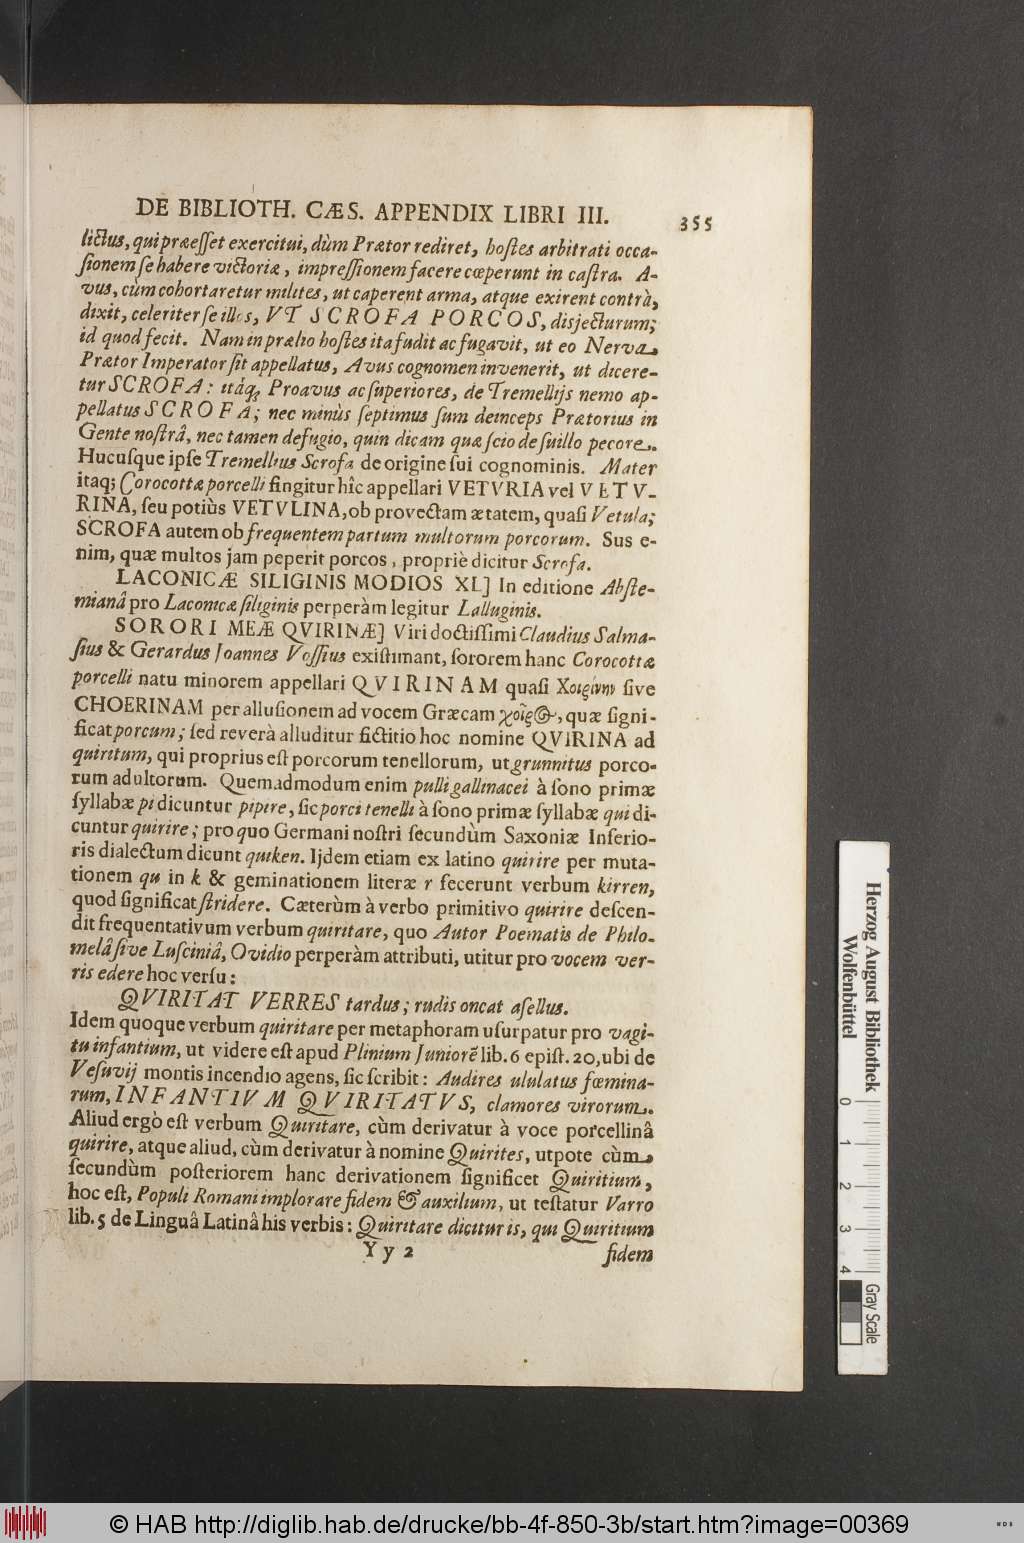 DE BIBLIOTH. CÆS. APPENDIX LIBRI III. 355
lictus, qui præeſſet exercitui, dùm Prætor rediret, hoſtes arbitrati occa-
ſionem ſe habere victoriæ, impreſſionem facere cœperunt in caſtra. A-
vus, cùm cohortaretur milites, ut caperent arma, atque exirent contrà,
dixit, celeriter ſe illos, VT SCROFA PORCOS, disjecturum;
id quod fecit. Nam in prælio hoſtes ita fudit ac fugavit, ut eo Nerva
Prætor Imperator ſit appellatus, Avus cognomen invenerit, ut dicere-
tur SCROFA: itáq; Proavus ac ſuperiores, de Tremellijs nemo ap-
pellatus SCROFA; nec minùs ſeptimus ſum deinceps Prætorius in
Gente noſtrâ, nec tamen defugio, quin dicam quæ ſcio de ſuillo pecore.
Hucuſque ipſe Tremellius Scrofa de origine ſui cognominis. Mater
itaq; Corocottæ porcelli fingitur hîc appellari VETVRIA vel VETV-
RINA, ſeu potiùs VETVLINA, ob provectam ætatem, quaſi Vetula;
SCROFA autem ob frequentem partum multorum porcorum. Sus e-
nim, quæ multos jam peperit porcos, propriè dicitur Scrofa.
LACONICÆ SILIGINIS MODIOS XL] In editione Abſte-
mianâ pro Laconicæ ſiliginis perperàm legitur Lalluginis.
SORORI MEÆ QVIRINÆ] Viri doctiſſimi Claudius Salma-
ſius & Gerardus Joannes Voſſius exiſtimant, ſororem hanc Corocottæ
porcelli natu minorem appellari QVIRINAM quaſi Χοιρίνην ſive
CHOERINAM per alluſionem ad vocem Græcam χοῖρος, quæ ſigni-
ficat porcum; ſed reverà alluditur fictitio hoc nomine QVIRINA ad
quiritum, qui proprius eſt porcorum tenellorum, ut grunnitus porco-
rum adultorum. Quemadmodum enim pulli gallinacei à ſono primæ
ſyllabæ pi dicuntur pipire, ſic porci tenelli à ſono primæ ſyllabæ qui di-
cuntur quirire; pro quo Germani noſtri ſecundùm Saxoniæ Inferio-
ris dialectum dicunt quiken. Ijdem etiam ex latino quirire per muta-
tionem qu in k & geminationem literæ r fecerunt verbum kirren,
quod ſignificat ſtridere. Cæterùm à verbo primitivo quirire deſcen-
dit frequentativum verbum quiritare, quo Autor Poematis de Philo-
melâ ſive Luſciniâ, Ovidio perperàm attributi, utitur pro vocem ver-
ris edere hoc verſu:
QVIRITAT VERRES tardus; rudis oncat aſellus.
Idem quoque verbum quiritare per metaphoram uſurpatur pro vagi-
tu infantium, ut videre eſt apud Plinium Juniorē lib. 6 epiſt. 20, ubi de
Veſuvij montis incendio agens, ſic ſcribit: Audires ululatus fœmina-
rum, INFANTIVM QVIRITATVS, clamores virorum.
Aliud ergò eſt verbum Quiritare, cùm derivatur à voce porcellinâ
quirire, atque aliud, cùm derivatur à nomine Quirites, utpote cùm
ſecundùm poſteriorem hanc derivationem ſignificet Quiritium,
hoc eſt, Populi Romani implorare fidem & auxilium, ut teſtatur Varro
lib. 5 de Linguâ Latinâ his verbis: Quiritare dicitur is, qui Quiritium
Yy 2 fidem
Herzog August Bibliothek
Wolfenbüttel
0 1 2 3 4
Gray Scale
© HAB http://diglib.hab.de/drucke/bb-4f-850-3b/start.htm?image=00369
WDB